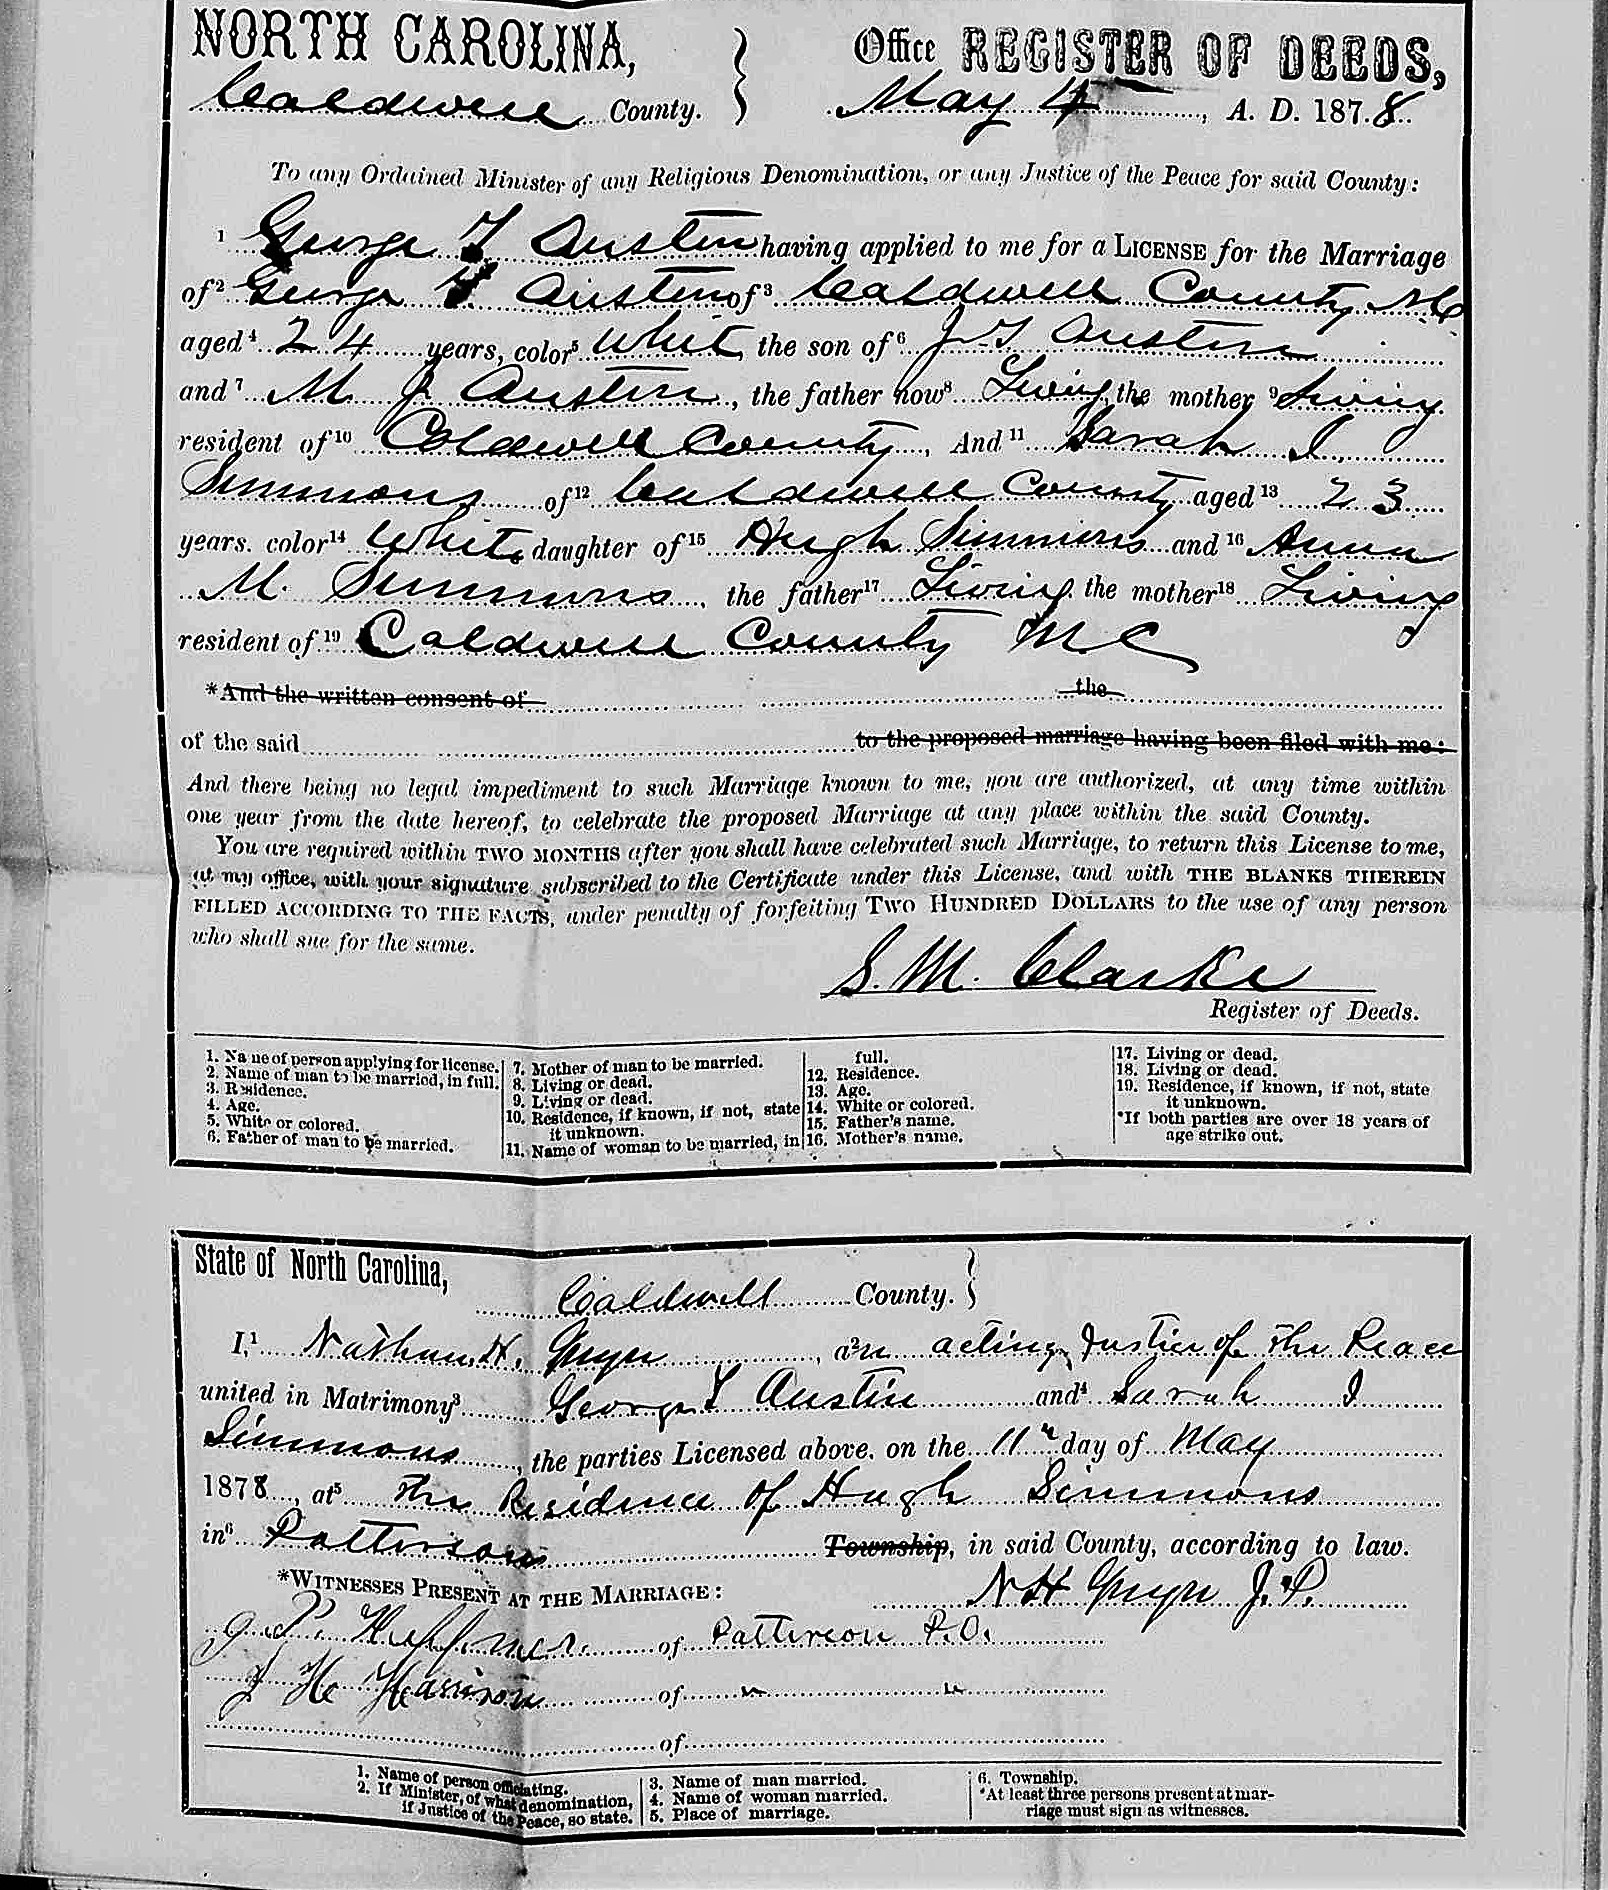 NORTH CAROLINA, Office REGISTER OF DEEDS,
Caldwell County. May 4, A. D. 1878.
To any Ordained Minister of any Religious Denomination, or any Justice of the Peace for said County:
1 George T Austin having applied to me for a LICENSE for the Marriage
of 2 George T Austin of 3 Caldwell County NC
aged 4 24 years, color 5 Whit, the son of 6 J T Austin
and 7 M J Austin, the father now 8 Living, the mother 9 Living
resident of 10 Caldwell County, And 11 Sarah I
Simmons of 12 Caldwell County aged 13 23
years. color 14 White daughter of 15 Hugh Simmons and 16 Anna
M. Simmons, the father 17 Living. the mother 18 Living
resident of 19 Caldwell County N C
*And the written consent of the
of the said to the proposed marriage having been filed with me:
And there being no legal impediment to such Marriage known to me, you are authorized, at any time within
one year from the date hereof, to celebrate the proposed Marriage at any place within the said County.
You are required within TWO MONTHS after you shall have celebrated such Marriage, to return this License to me,
at my office, with your signature subscribed to the Certificate under this License, and with THE BLANKS THEREIN
FILLED ACCORDING TO THE FACTS, under penalty of forfeiting TWO HUNDRED DOLLARS to the use of any person
who shall sue for the same.
S. M. Clarke
Register of Deeds.
1. Name of person applying for license.
2. Name of man to be married, in full.
3. Residence.
4. Age.
5. White or colored.
6. Father of man to be married.
7. Mother of man to be married.
8. Living or dead.
9. Living or dead.
10. Residence, if known, if not, state
it unknown.
11. Name of woman to be married, in
full.
12. Residence.
13. Age.
14. White or colored.
15. Father's name.
16. Mother's name.
17. Living or dead.
18. Living or dead.
19. Residence, if known, if not, state
it unknown.
*If both parties are over 18 years of
age strike out.
State of North Carolina,
Caldwell County.
I,1 Nathan H. Gwyn, an acting Justice of The Peace
united in Matrimony 3 George T Austin and 4 Sarah I
Simmons, the parties Licensed above, on the 11 day of May
1878, at 5 The Residence of Hugh Simmons
in 6 Patterson Township, in said County, according to law.
*WITNESSES PRESENT AT THE MARRIAGE: N H Gwyn J.P.
J. P. Huffman of Patterson P.O.
J H Harrison of " "
of
1. Name of person officiating.
2. If Minister, of what denomination,
if Justice of the Peace, so state.
3. Name of man married.
4. Name of woman married.
5. Place of marriage.
6. Township.
*At least three persons present at mar-
riage must sign as witnesses.